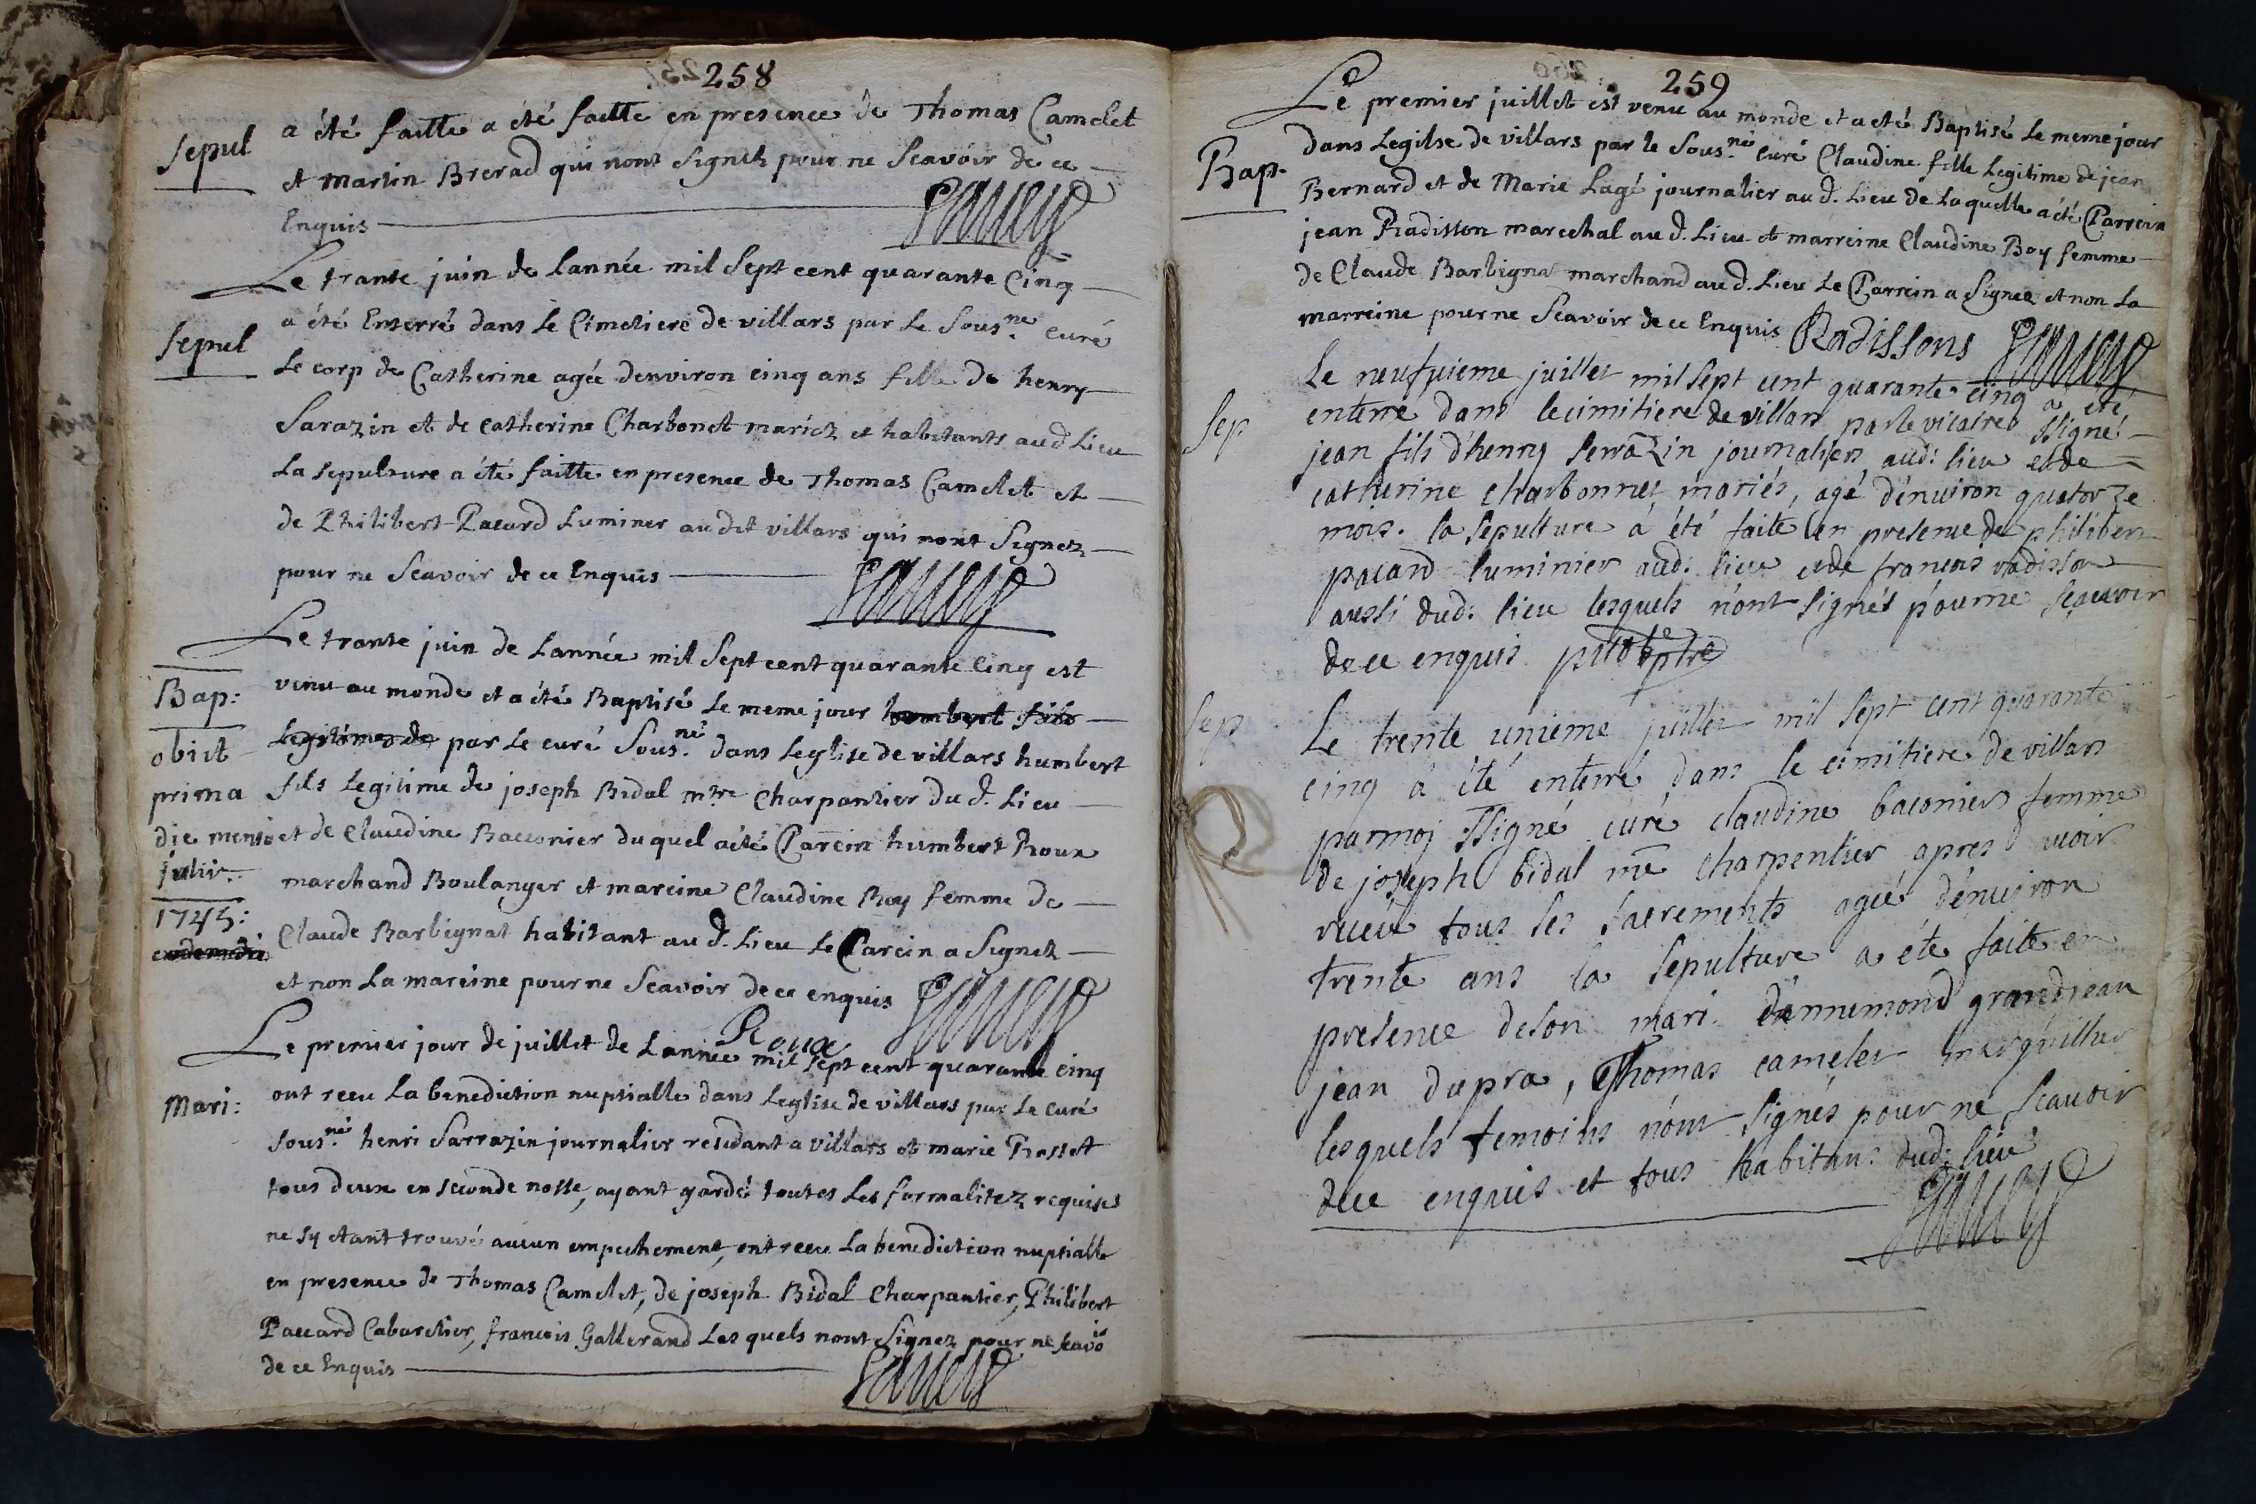 258
sepul
a été faitte a été faitte en presence de Thomas Camelet
et martin Brerad qui nont Signéz pour ne Scavoir de ce
Enquis
Le trante juin de Lannée mil Sept cent quarante Cinq
sepul
a été Enterré dans Le Cimetiere de villars par Le Sous.né curé
Le corp de Catherine agée denviron cinq ans fille de henry
Sarazin et de catherine Charbonet mariéz et habitants aud Lieu
La sepulture a été faitte en presence de Thomas Camelet et
de Philibert Pacard Luminier au dit villars qui nont Signez
pour ne Scavoir de ce Enquis
Le trante juin de Lannée mil Sept cent quarante Cinq est
Bap:
venu au monde et a été Baptisé Le meme jour humbert fils
obiit
Legitime de par Le curé Sous.né dans Leglise de villars humbert
prima
fils Legitime de joseph Bidal m.tre Charpantier du d. Lieu
die mensis
et de Claudine Bacconier du quel a été Parein humbert Roux
julii.
marchand Boulanger et mareine Claudine Roy femme de
1745:
Claude Barbignat habitant au d. Lieu Le Parein a Signez
et non La mareine pour ne Scavoir de ce enquis
Roux
Le premier jour de juillet de Lannée mil Sept cent quarante cinq
Mari:
ont receu La benediction nuptialle dans Leglise de villars par Le Curé
Sous.né henri Sarrazin journalier residant a villars et marie
tous deux en seconde nosse, ayant gardé toutes Les formalitez requises
ne sy etant trouvé aucun empechement, ont receu La benediction nuptialle
en presence de Thomas Camelet, de joseph Bidal Charpantier, Philibert
Paccard Cabaretier, francois Gallerand Les quels nont Signez pour ne scavo
de ce Enquis
259
Le premier juillet est venu au monde et a eté Baptisé Le meme jour
Bap.
dans Legilse de villars par le Sous.né curé Claudine fille Legitime de jean
Bernard et de Marie Lagé journalier au d. Lieu de Laquelle a été Parrein
jean Radisson marechal au d. Lieu et marreine Claudine Roy femme
de Claude Barbignat marchand au d. Lieu Le Parrein a Signez et non La
marreine pour ne Scavoir de ce Enquis Radissons
Le neufvieme juillet mil sept cent quarante cinq a eté
Sep
enterré dans le cimitiere de villars par le vicaire ssigné
jean fils d'henry serrazin journalier aud: lieu et de
catherine charbonnet mariés, agé d'enuiron quatorze
mois. la sepulture a été faite en presence de philibert
pacard luminier aud: lieu et de francois radisson
aussi dud: lieu lesquels n'ont signés pour ne sçauoir
de ce enquis
Sep
Le trente unieme juillet mil sept cent quarante
cinq a été enterré dans le cimitiere de villars
par moj ssigné curé claudine baconier femme
de joseph bidal me charpentier apres avoir
receu tous les sacrements ageé d'enuiron
trente ans la sepulture a été faite en
presence de son mari d'ennemond grandjean
jean dupra, Thomas camelet marguillier
lesquels temoins n'ont signés pour ne scauoir
de ce enquis et tous habitans dud: lieu